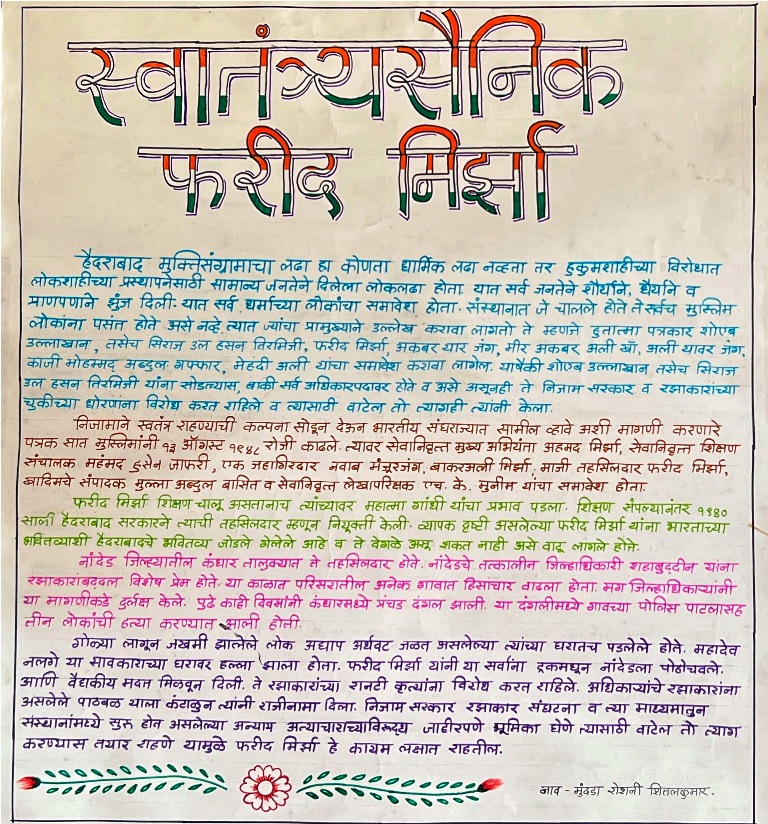 स्वातंत्र्यसैनिक
फरीद मिर्झा
हैदराबाद मुक्तिसंग्रामाचा लढा हा कोणता धार्मिक लढा नव्हता तर हुकुमशाहीच्या विरोधात
लोकशाहीच्या प्रस्थापनेसाठी सामान्य जनतेने दिलेला लोकलढा होता. यात सर्व जनतेने शौर्याने, धैर्याने व
प्राणपणाने झुंज दिली. यात सर्व धर्माच्या लोकांचा समावेश होता. संस्थानात जे चालले होते ते सर्वच मुस्लिम
लोकांना पसंत होते असे नव्हे, त्यात ज्यांचा प्रामुख्याने उल्लेख करावा लागतो ते म्हणजे हुतात्मा पत्रकार शोएब
उल्लाखान, तसेच सिराज उल हसन तिरमिजी, फरीद मिर्झा, अकबर यार जंग, मीर अकबर अली खाँ, अली यावर जंग,
काजी मोहम्मद अब्दुल गफ्फार, मेहदी अली यांचा समावेश करावा लागेल. यापैकी शोएब उल्लाखान तसेच सिराज
उल हसन तिरमिजी यांना सोडल्यास, बाकी सर्व अधिकारपदावर होते व असे असूनही ते निजाम सरकार व रझाकारांच्या
चुकीच्या धोरणांना विरोध करत राहिले व त्यासाठी वाटेल तो त्यागही त्यांनी केला.
निजामाने स्वतंत्र राहण्याची कल्पना सोडून देऊन भारतीय संघराज्यात सामील व्हावे अशी मागणी करणारे
पत्रक सात मुस्लिमांनी १३ ऑगस्ट १९४८ रोजी काढले. त्यावर सेवानिवृत्त मुख्य अभियंता अहमद मिर्झा, सेवानिवृत्त शिक्षण
संचालक महंमद हुसेन जाफरी, एक जहागिरदार नवाब मंजूरजंग, बाकरअली मिर्झा, माजी तहसिलदार फरीद मिर्झा,
खादिमचे संपादक मुल्ला अब्दुल बासित व सेवानिवृत्त लेखापरिक्षक एच. के. मुनीम यांचा समावेश होता.
फरीद मिर्झा शिक्षण चालू असतानाच त्यांच्यावर महात्मा गांधी यांचा प्रभाव पडला. शिक्षण संपल्यानंतर १९४०
साली हैदराबाद सरकारने त्याची तहसिलदार म्हणून नियूक्ती केली. व्यापक दृष्टी असलेल्या फरीद मिर्झा यांना भारताच्या
भवितव्याशी हैदराबादचे भवितव्य जोडले गेलेले आहे व ते वेगळे असू शकत नाही असे वाटू लागले होते.
नांदेड जिल्ह्यातील कंधार तालुक्यात ते तहसिलदार होते. नांदेडचे तत्कालीन जिल्हाधिकारी शहाबुद्दीन यांना
रझाकारांबद्दल विशेष प्रेम होते. या काळात परिसरातील अनेक गावात हिंसाचार वाढला होता. मग जिल्हाधिकाऱ्यांनी
या मागणीकडे दुर्लक्ष केले. पुढे काही दिवसांनी कंधारमध्ये प्रचंड दंगल झाली. या दंगलीमध्ये गावच्या पोलिस पाटलासह
तीन लोकांची हत्या करण्यात आली होती.
गोळ्या लागून जखमी झालेले लोक अद्याप अर्धवट जळत असलेल्या त्यांच्या घरातच पडलेले होते. महादेव
नलगे या सावकाराच्या घरावर हल्ला झाला होता. फरीद मिर्झा यांनी या सर्वांना ट्रकमधून नांदेडला पोहोचवले.
आणि वैद्यकीय मदत मिळवून दिली. ते रझाकारांच्या रानटी कृत्यांना विरोध करत राहिले. अधिकाऱ्यांचे रझाकारांना
असलेले पाठबळ याला कंटाळून त्यांनी राजीनामा दिला. निजाम सरकार रझाकार संघटना व त्या माध्यमातून
संस्थानांमध्ये सुरू होत असलेल्या अन्याय अत्याचाराच्याविरूद्ध जाहीरपणे भूमिका घेणे त्यासाठी वाटेल तो त्याग
करण्यास तयार राहणे यामुळे फरीद मिर्झा हे कायम लक्षात राहतील.
नाव - मुंदडा रोशनी शितलकुमार.